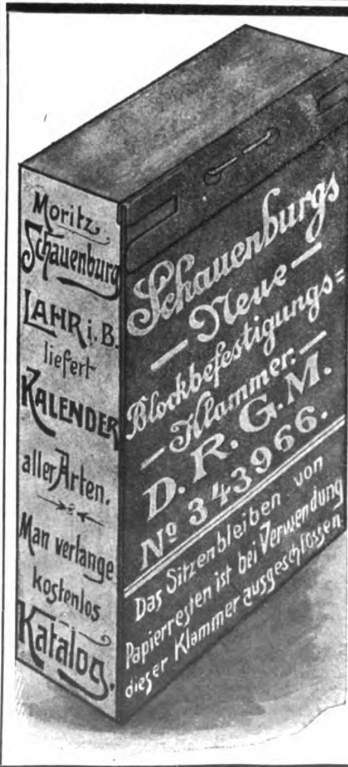 Moritz
Schauenburg
LAHR i. B.
liefert
KALENDER
aller Arten.
Man verlange
kostenlos
Katalog.
Schauenburgs
— Neue —
Blockbefestigungs=
— Klammer. —
D. R. G. M.
Nº 343966.
Das Sitzenbleiben von
Papierresten ist bei Verwendung
dieser Klammer ausgeschlossen.